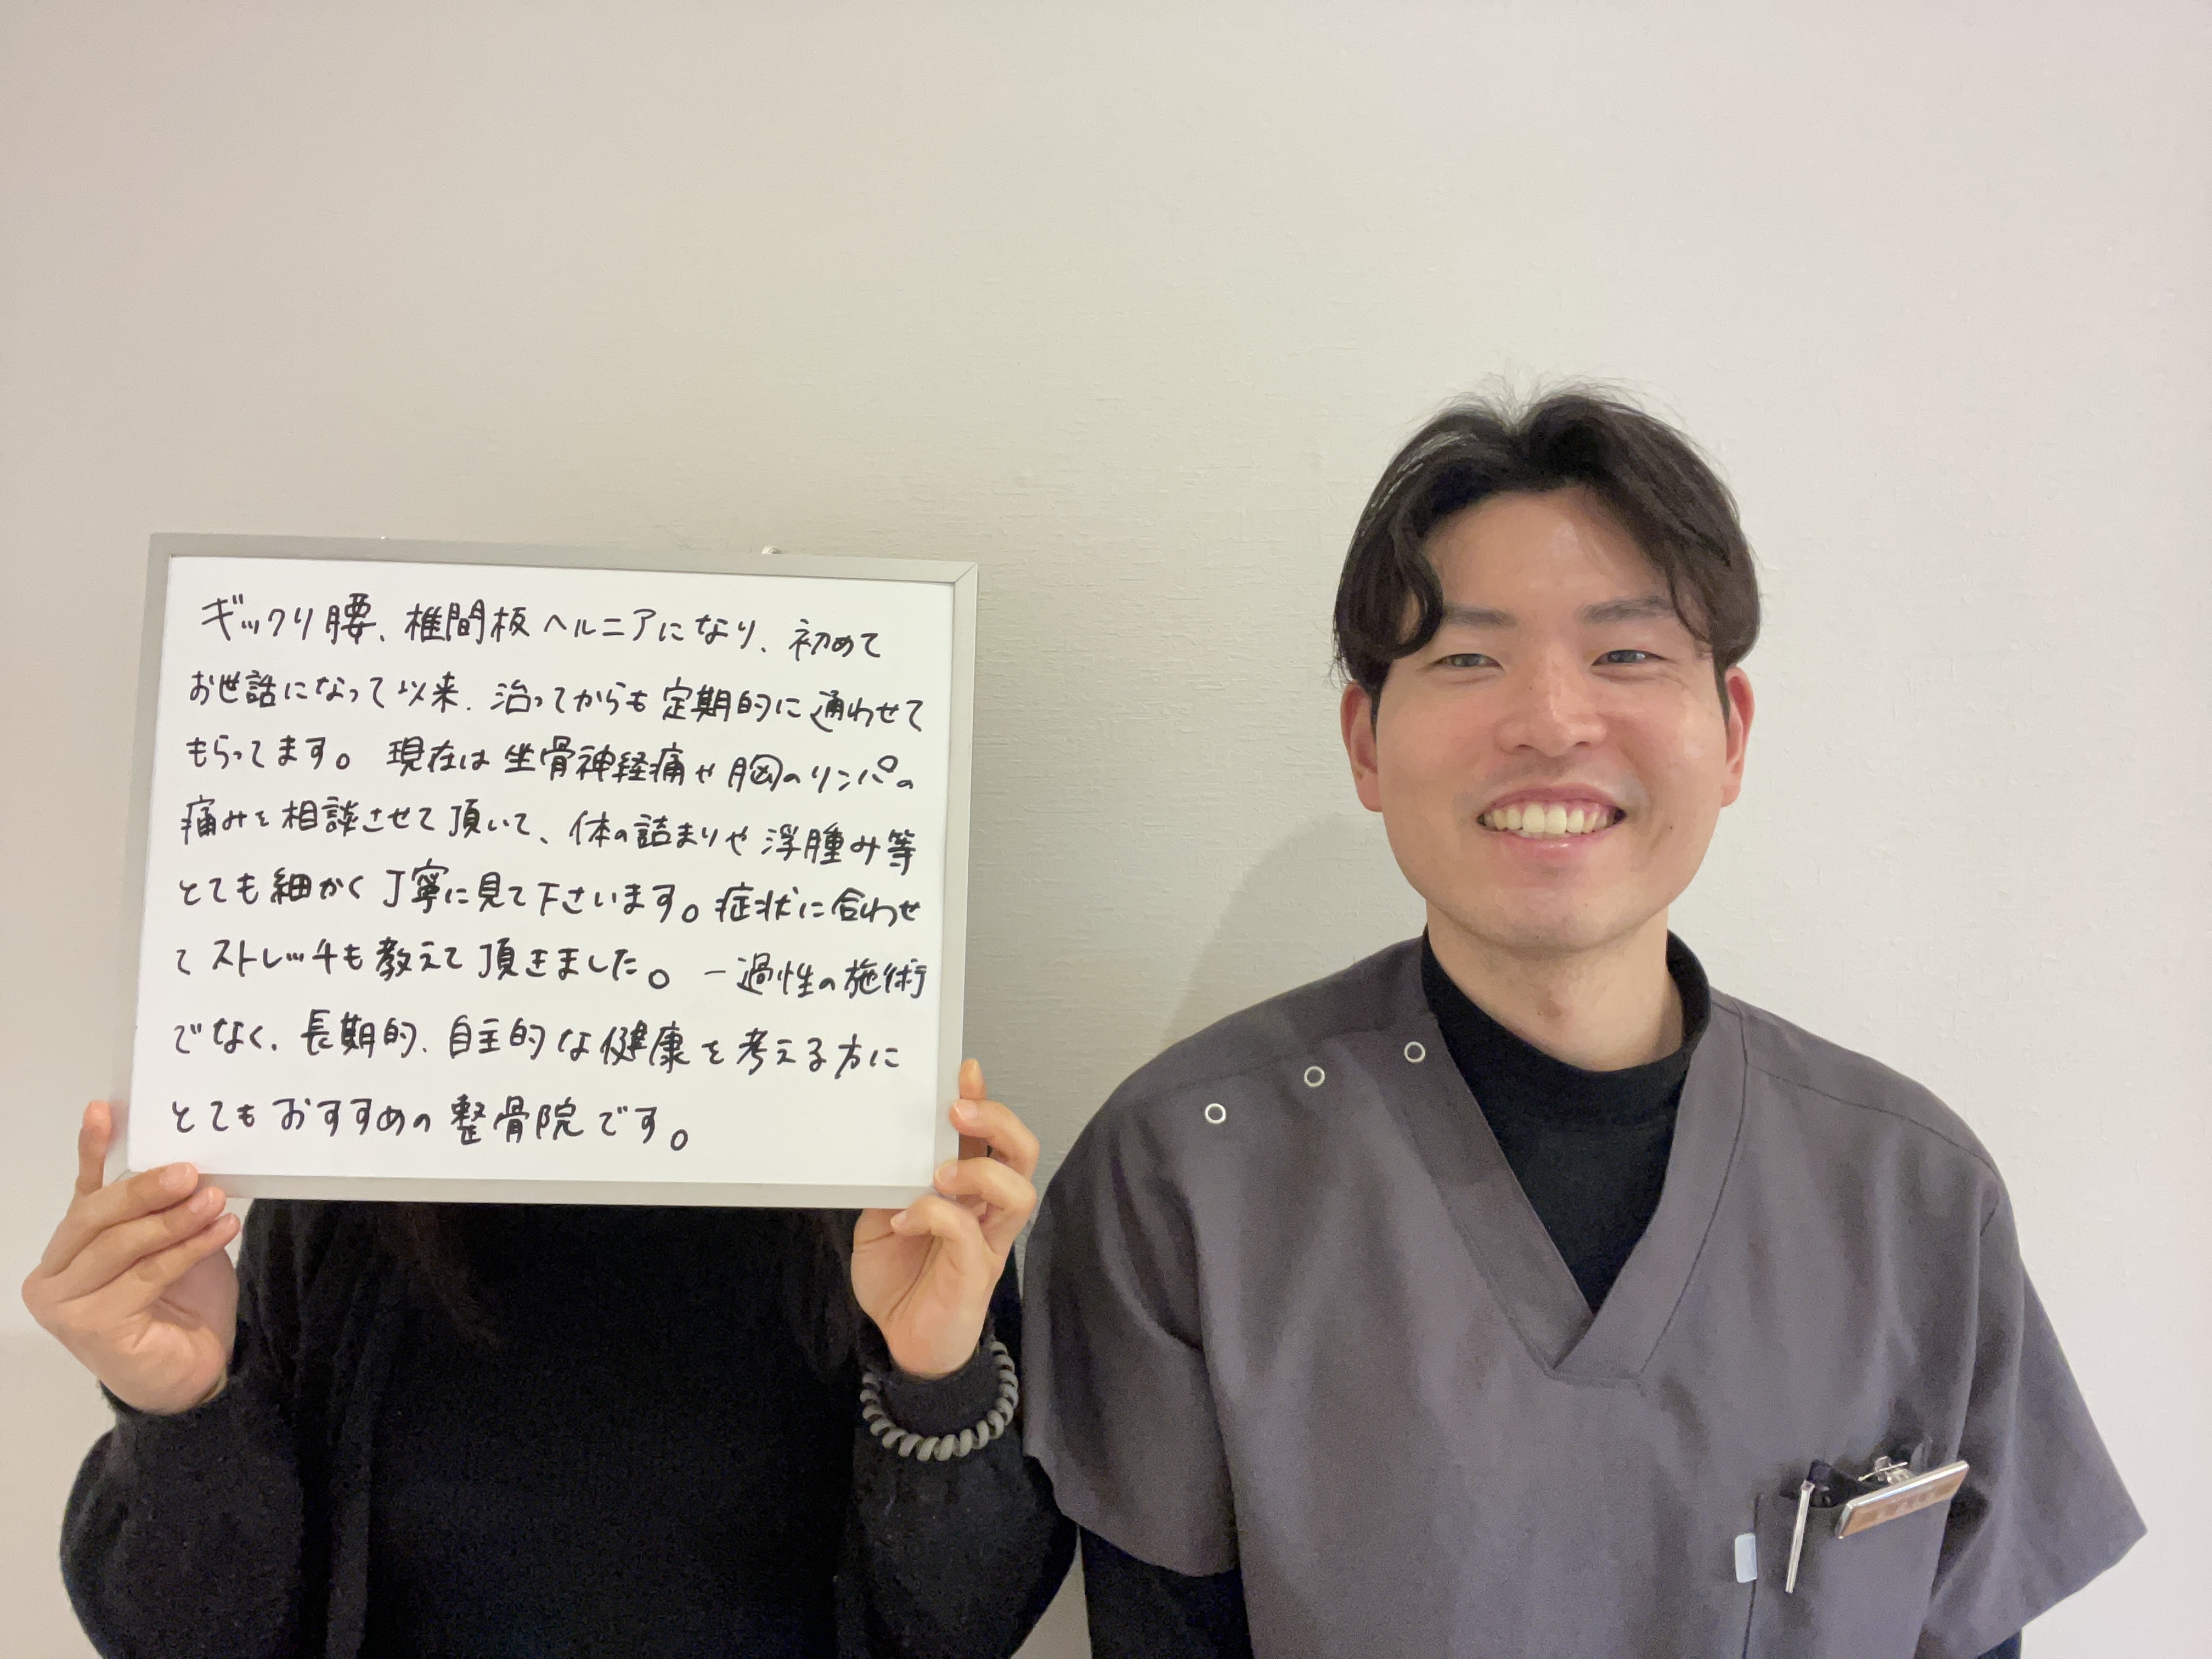 ギックリ腰、椎間板ヘルニアになり、初めて
お世話になって以来、治ってからも定期的に通わせて
もらってます。現在は坐骨神経痛や胸のリンパの
痛みを相談させて頂いて、体の詰まりや浮腫み等
とても細かく丁寧に見て下さいます。症状に合わせ
てストレッチも教えて頂きました。一過性の施術
でなく、長期的、自主的な健康を考える方に
とてもおすすめの整骨院です。